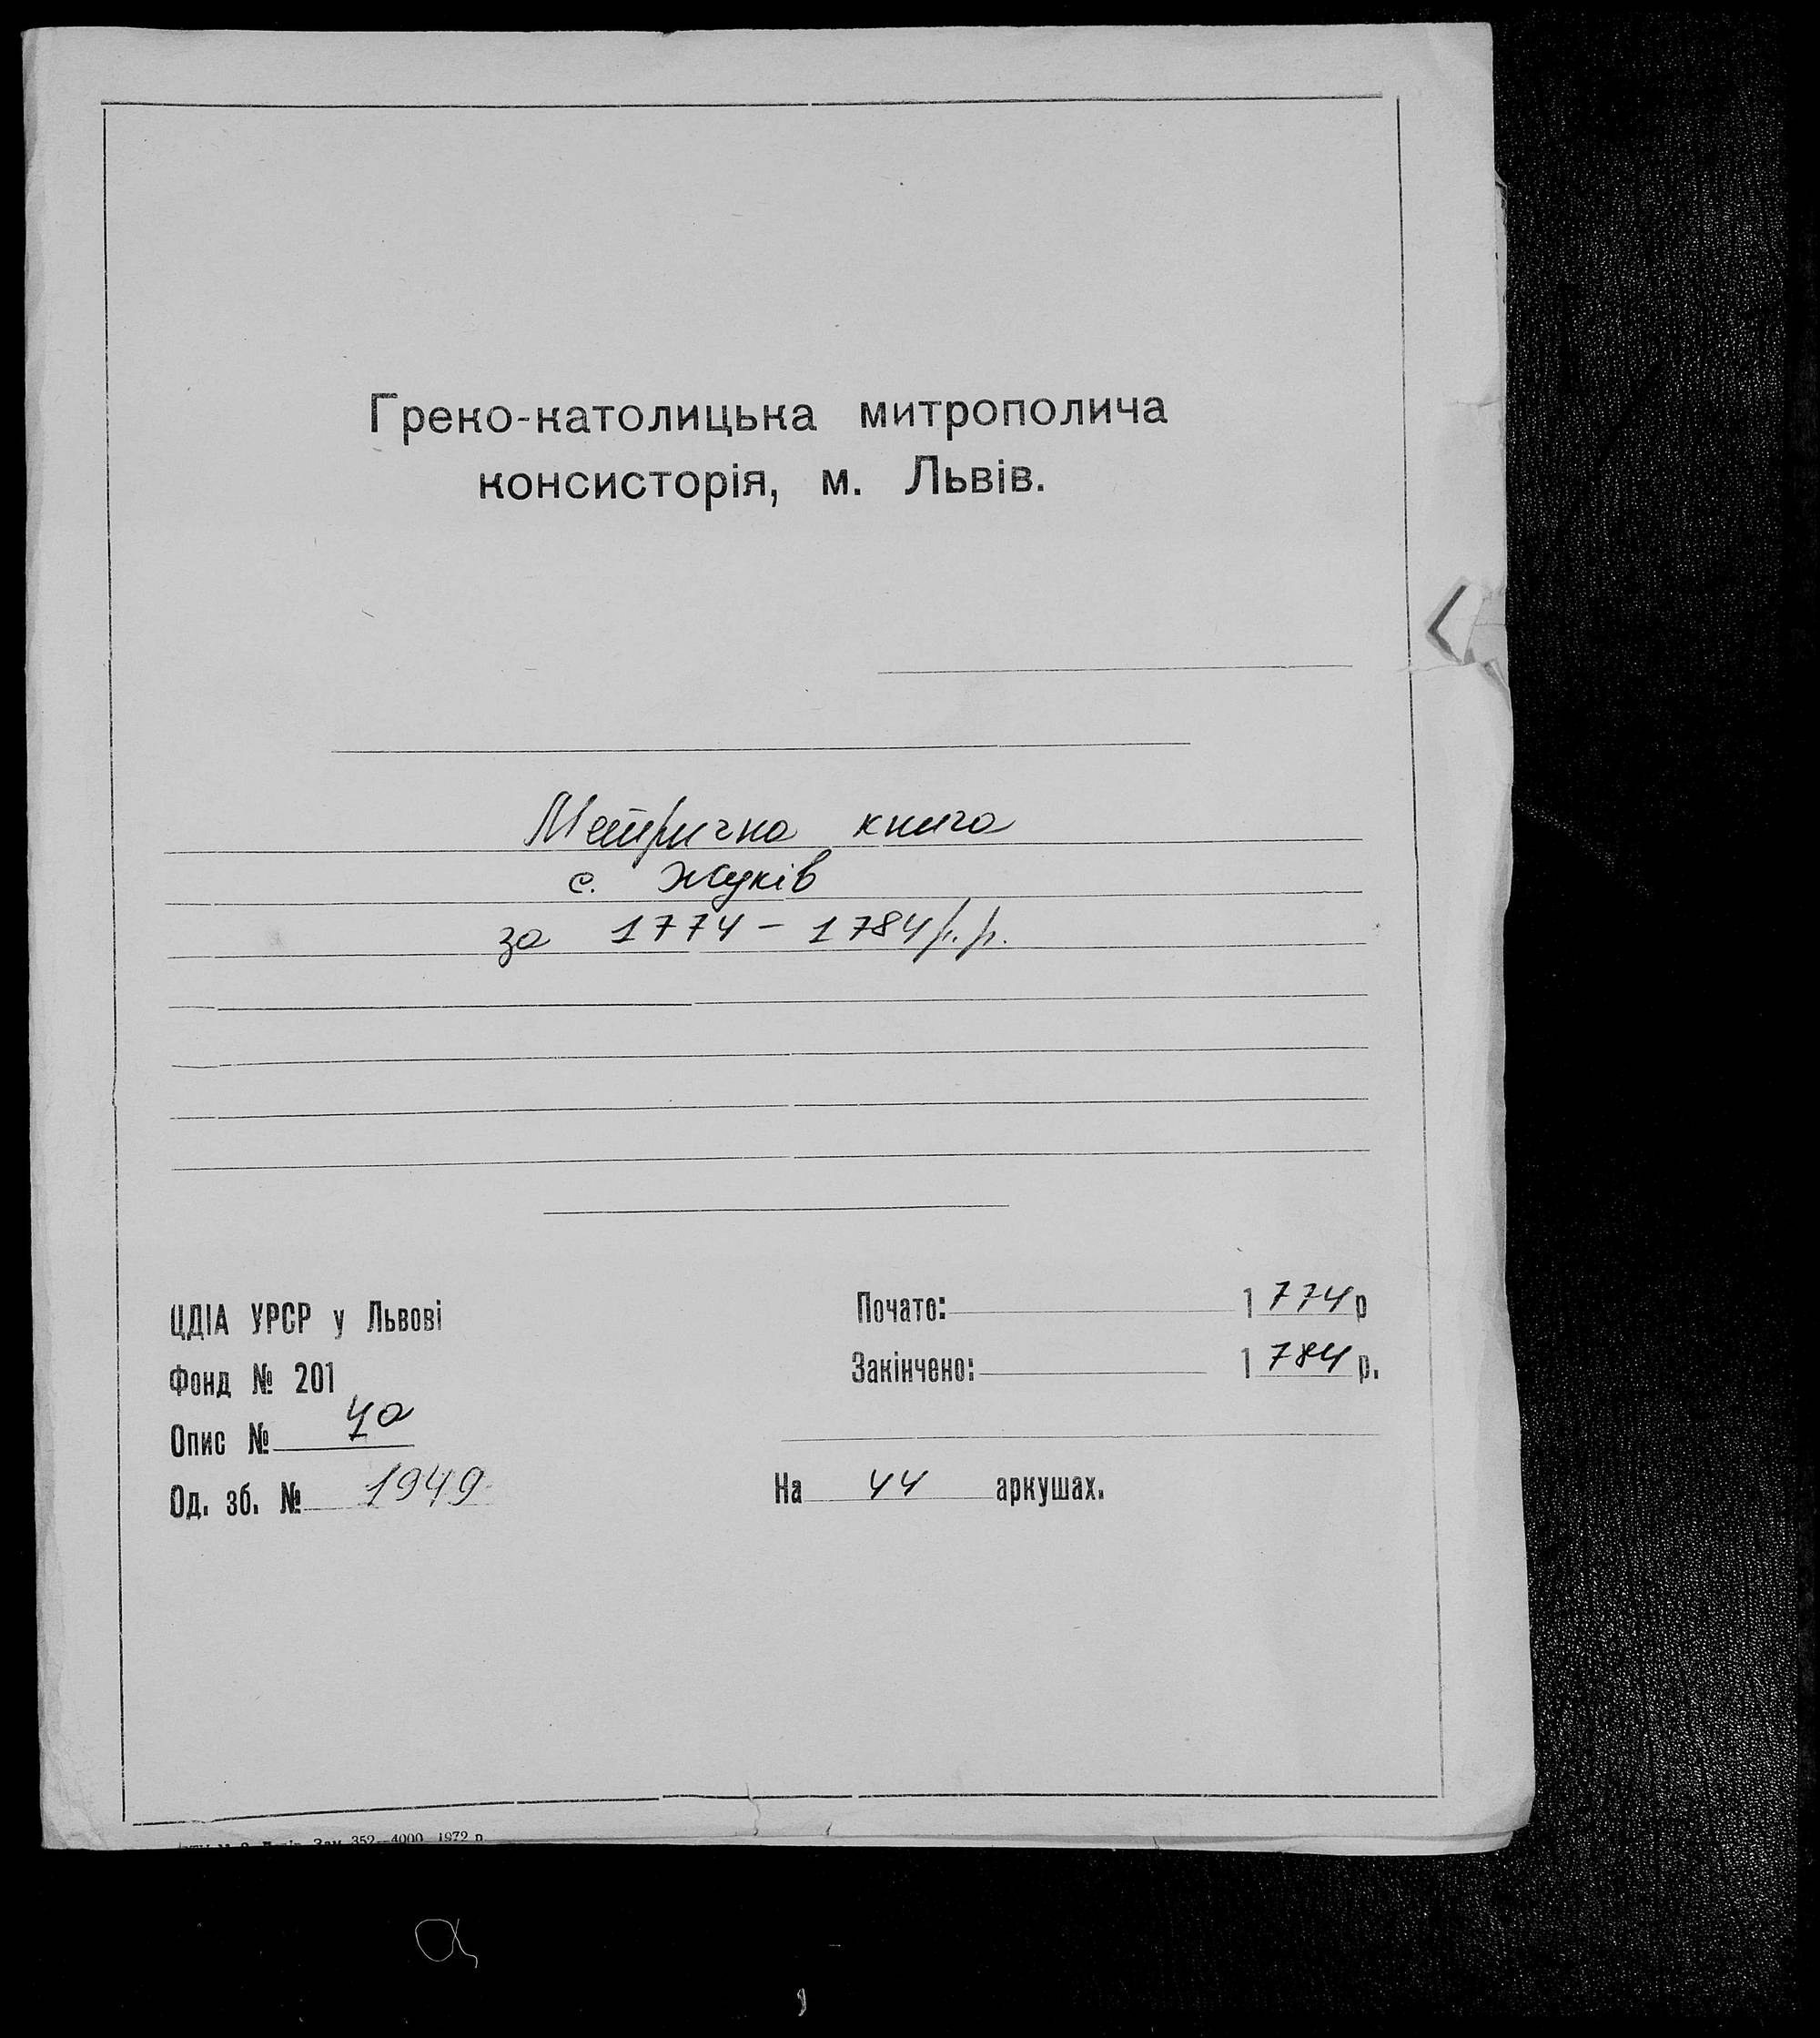 Греко-католицька митрополича
консисторія, м. Львів.
Метрична книга
с. Жуків
за 1774 - 1784 р.р.
ЦДІА УРСР у Львові
Фонд № 201
Опис № 4а
Од. зб. № 1949
Почато: 1774 р
Закінчено: 1784 р.
На 44 аркушах.
Зам. 352—4000 1972 р.